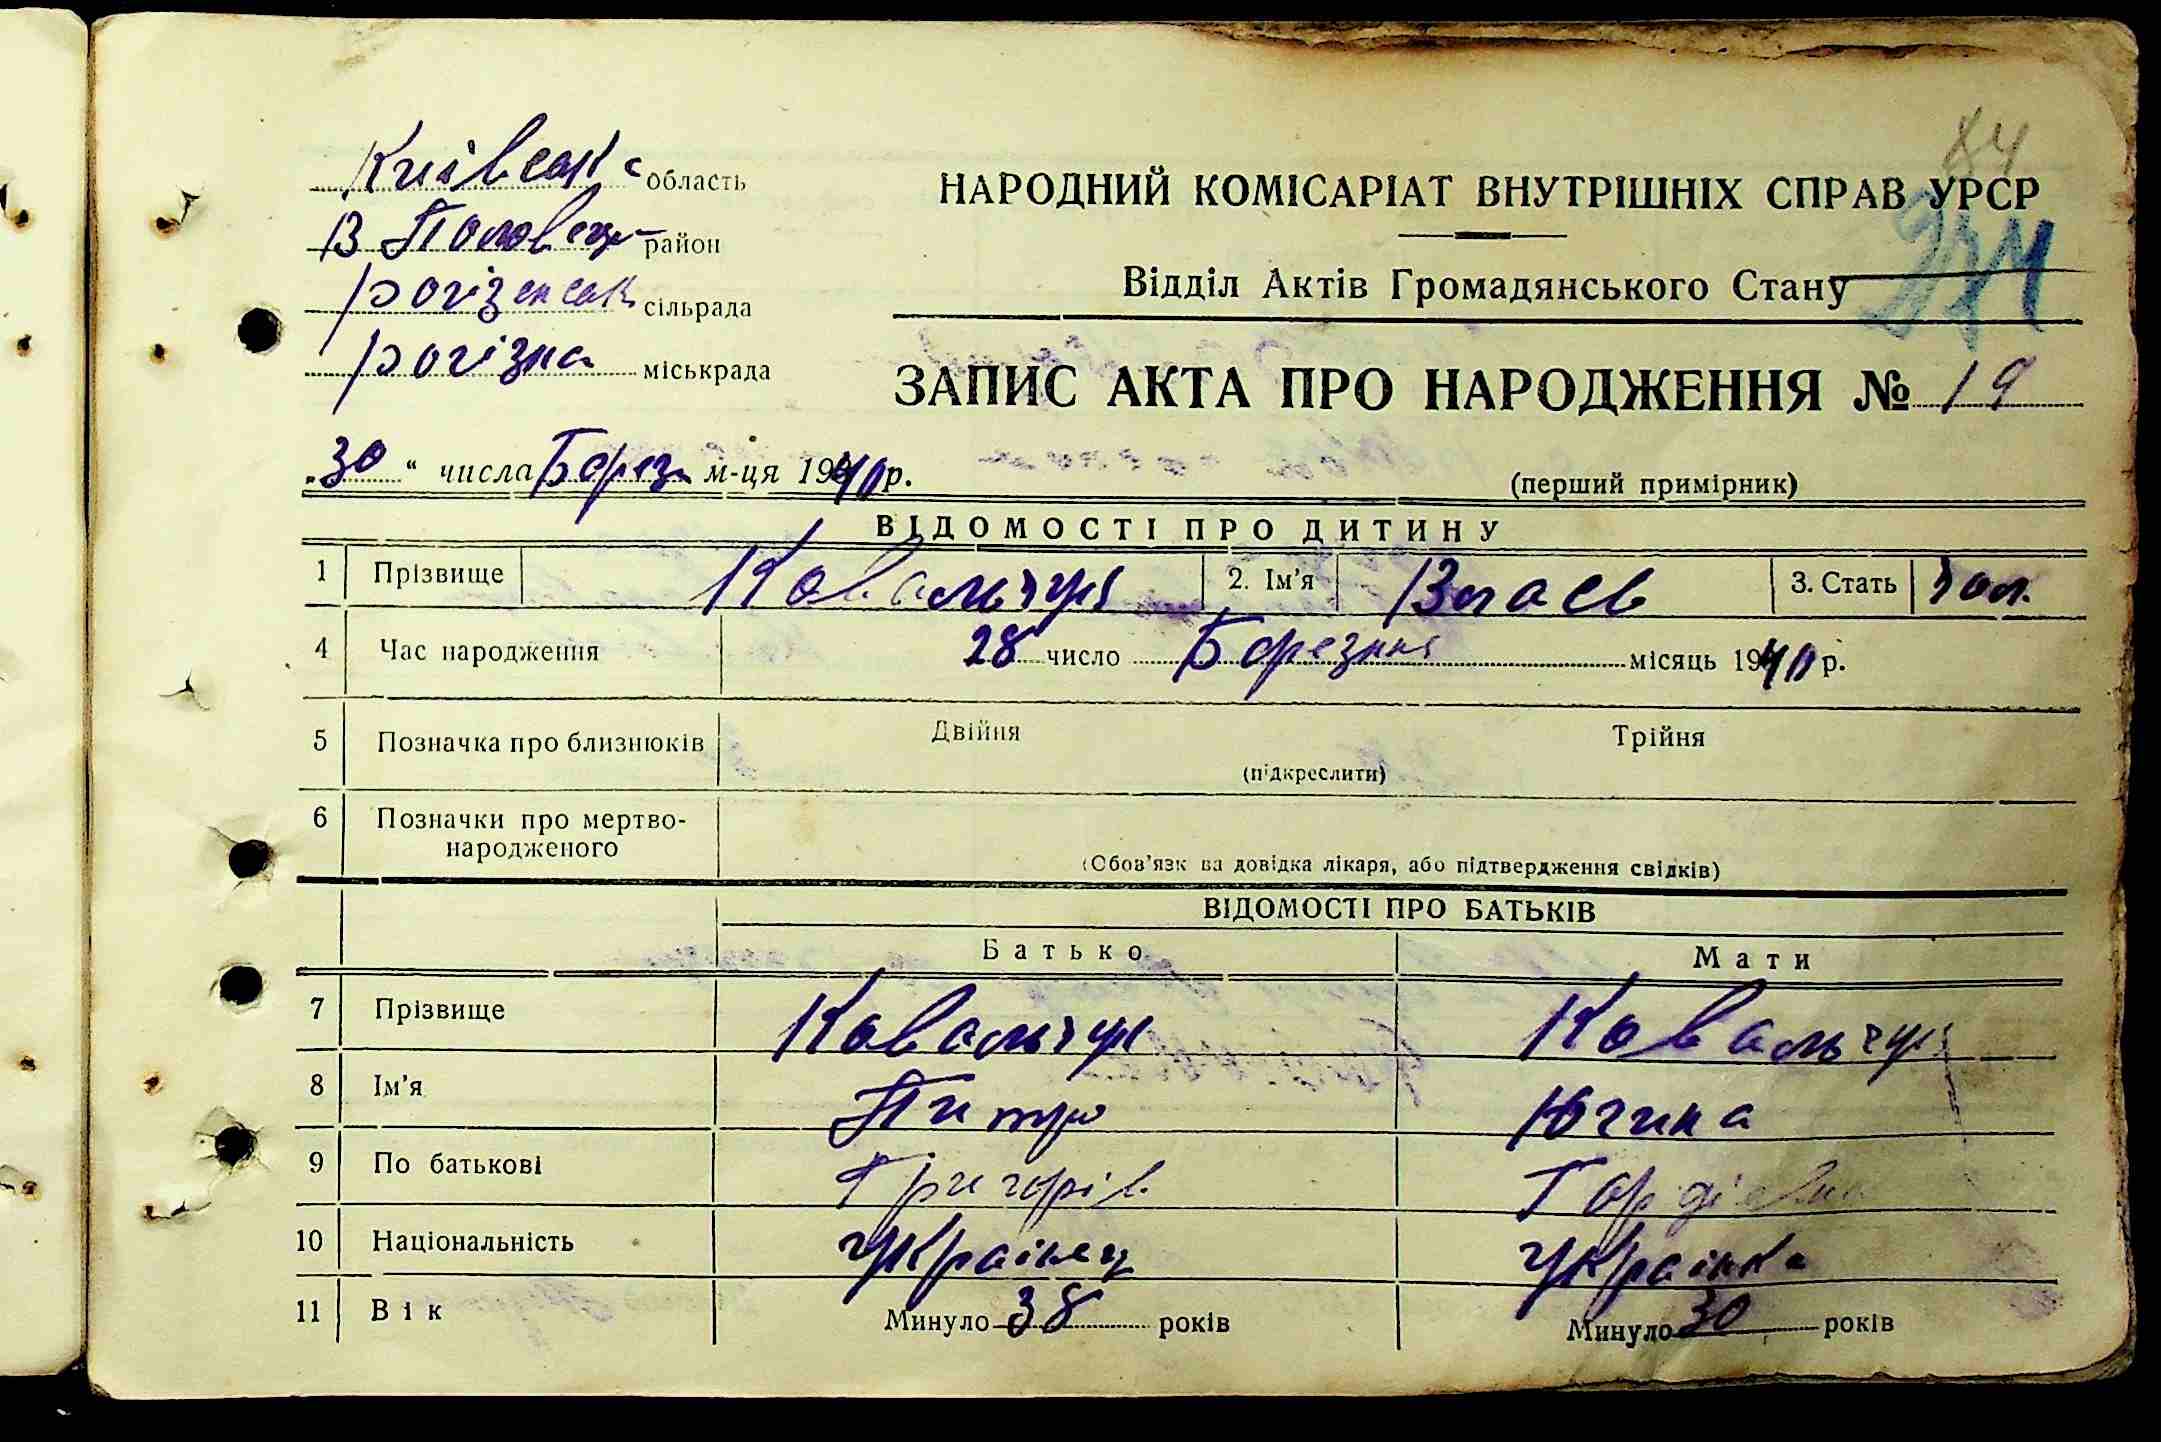 84
Київськ область
НАРОДНИЙ КОМІСАРІАТ ВНУТРІШНІХ СПРАВ УРСР
В Половец район
Відділ Актів Громадянського Стану
рогізенськ сільрада
рогізна міськрада
ЗАПИС АКТА ПРО НАРОДЖЕННЯ № 19
„30“ числа Берез м-ця 1940 р.
(перший примірник)
ВІДОМОСТІ ПРО ДИТИНУ
1 Прізвище Ковальчук 2. Ім'я 3. Стать чол.
4 Час народження 28 число Березня місяць 1940 р.
5 Позначка про близнюків Двійня Трійня
(підкреслити)
6 Позначки про мертво-
народженого
(Обов'язк ва довідка лікаря, або підтвердження свідків)
ВІДОМОСТІ ПРО БАТЬКІВ
Батько Мати
7 Прізвище Ковальчук Ковальчук
8 Ім'я Питро Югина
9 По батькові Григорів Гордієвна
10 Національність українец українка
11 Вік Минуло 38 років Минуло 30 років